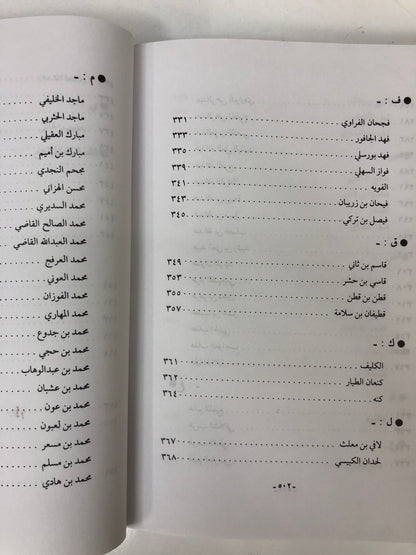 ● ف : -
فجحان الفراوي ٣٣١
فهد الجافور ٣٣٣
فهد بورسلي ٣٣٥
فواز السهلي ٣٣٩
الفويه ٣٤١
فيحان بن زريبان ٣٤٣
فيصل بن تركي ٣٤٥
● ق : -
قاسم بن ثاني ٣٤٩
قاسي بن حشر ٣٥٣
قطن بن قطن ٣٥٥
قطيفان بن سلامة ٣٥٧
● ك : -
الكليف ٣٦١
كنعان الطيار ٣٦٢
كنه ٣٦٤
● ل : -
لافي بن معلث ٣٦٧
لحدان الكبيسي ٣٦٨
- ٥٠٢ -
● م : -
ماجد الخليفي
ماجد الحثربي
مبارك العقيلي
مبارك بن أميم
مجحم النجدي
محسن الهزاني
محمد السديري
محمد الصالح القاضي
محمد العبدالله القاضي
محمد العرفج
محمد العوني
محمد الفوزان
محمد المهاري
محمد بن جدوع
محمد بن حجي
محمد بن عبدالوهاب
محمد بن عشبان
محمد بن عون
محمد بن لعبون
محمد بن مسعر
محمد بن مسلم
محمد بن هادي